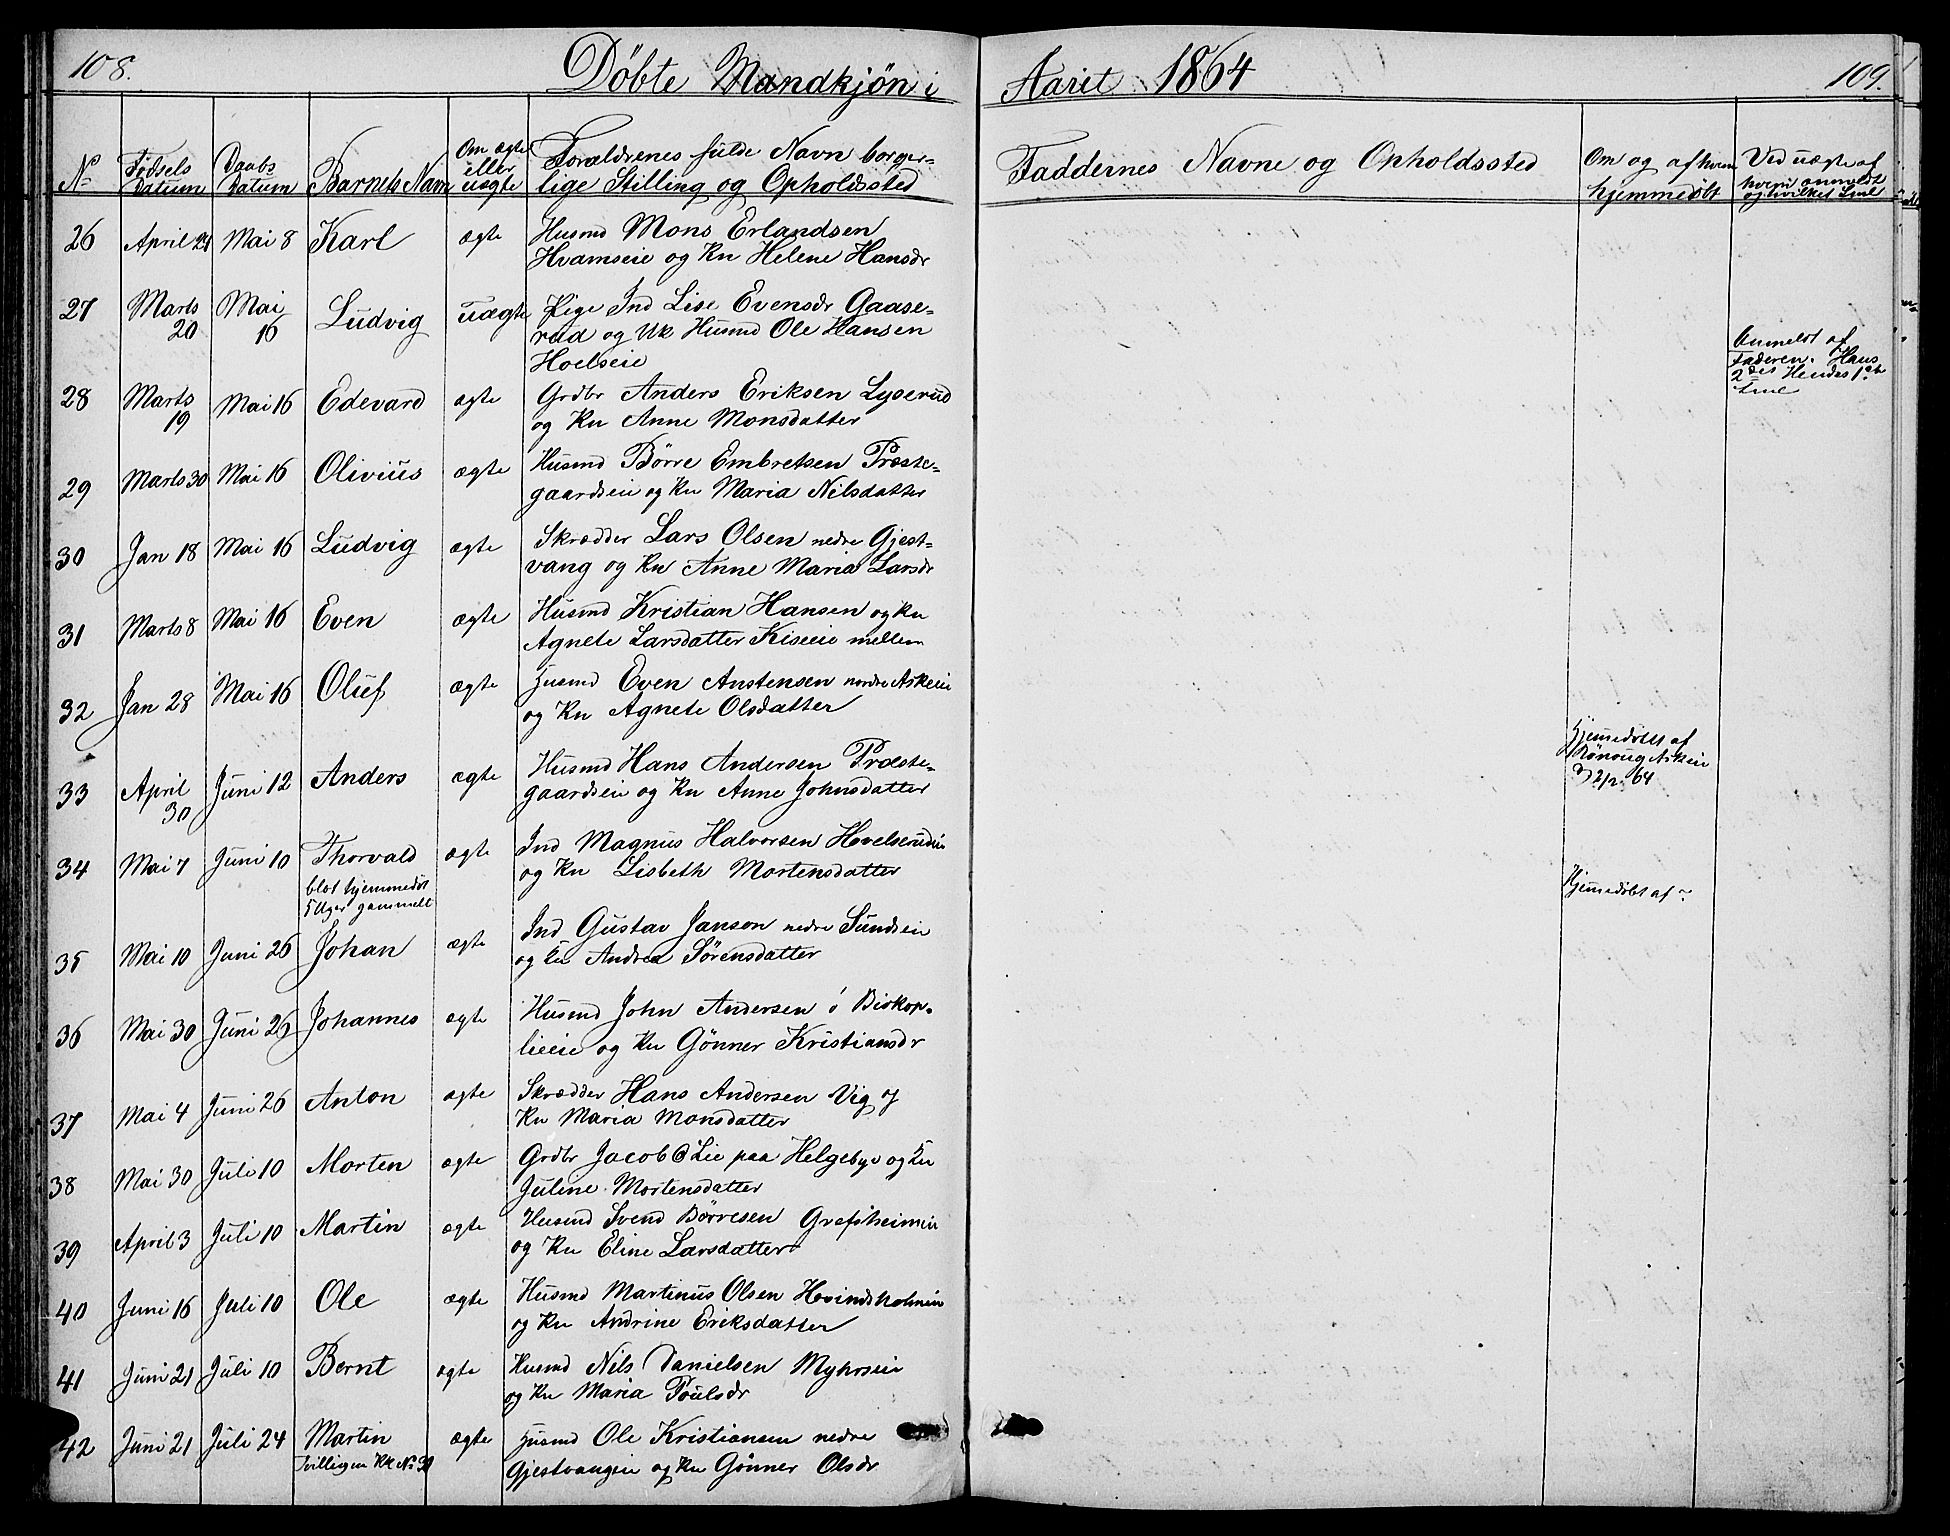 108.
Döbte Mandkjön i
Aaret 1864
109.
No
Födsels Datum
Daabs Datum
Barnets Navn
Om ægte eller uægte
Forældrenes fulde Navn borger-
lige Stilling og Opholdssted
Faddernes Navne og Opholdssted
Om og af hvem
hjemmedöbt
Ved uægte af
hvem anmeldt
og hvilket Leiel
26 April 21 Mai 8 Karl ægte Husmd Mons Erlandsen
Hvamseie og Kn Helene Hansdr
27 Marts 20 Mai 16 Ludvig uægte Pige Ind Lise Evensdr Gaase-
rud og Uk Husmd Ole Hansen
Hoelseie
Anmeldt af
Faderen. Hans
2det Hendes 1ste
Leiel
28 Marts 19 Mai 16 Edevard ægte Grdbr Anders Eriksen Lyserud
og Kn Anne Monsdatter
29 Marts 30 Mai 16 Olivius ægte Husmd Börre Embretsen Præste-
gaardseie og Kn Maria Nilsdatter
30 Jan 18 Mai 16 Ludvig ægte Skrædder Lars Olsen nedre Gjest-
vang og Kn Anne Maria Larsdr
31 Marts 8 Mai 16 Even ægte Husmd Kristian Hansen og Kn
Agnete Larsdatter Kiseeie mellem
32 Jan 28 Mai 16 Oluf ægte Husmd Even Anstensen nordre Askeie
og Kn Agnete Olsdatter
Hjemmedöbt af
Rönnoug Askeie
64
33 April 30 Juni 12 Anders ægte Husmd Hans Andersen Præste-
gaardseie og Kn Anne Johnsdatter
34 Mai 7 Juni 10 Thorvald ægte Ind Magnus Halvorsen Hovelsrudeie
blot hjemmedöt og Kn Lisbeth Mortensdatter
5 Uger gammelt
Hjemedöbt af ~
35 Mai 10 Juni 26 Johan ægte Ind Gustav Janson nedre Sundseie
og Kn Andrea Sörensdatter
36 Mai 30 Juni 26 Johannes ægte Husmd John Andersen ö Biskop-
lieeie og Kn Gönner Kristiansdr
37 Mai 4 Juni 26 Anton ægte Skrædder Hans Andersen Vig og
Kn Maria Monsdatter
38 Mai 30 Juli 10 Morten ægte Grdbr Jacob Lie paa Helgebye og Kn
Juline Mortensdatter
39 April 3 Juli 10 Martin ægte Husmd Svend Börresen Grefsheimeie
og Kn Eline Larsdatter
40 Juni 16 Juli 10 Ole ægte Husmd Martinus Olsen Hovindsholmeie
og Kn Andrine Eriksdatter
41 Juni 21 Juli 10 Bernt ægte Husmd Nils Danielsen Myhrseie
og Kn Maria Poulsdr
42 Juni 21 Juli 24 Martin ægte Husmd Ole Kristiansen nedre
Tvillingen KK No 30 Gjestvangen og Kn Gönner Olsdr